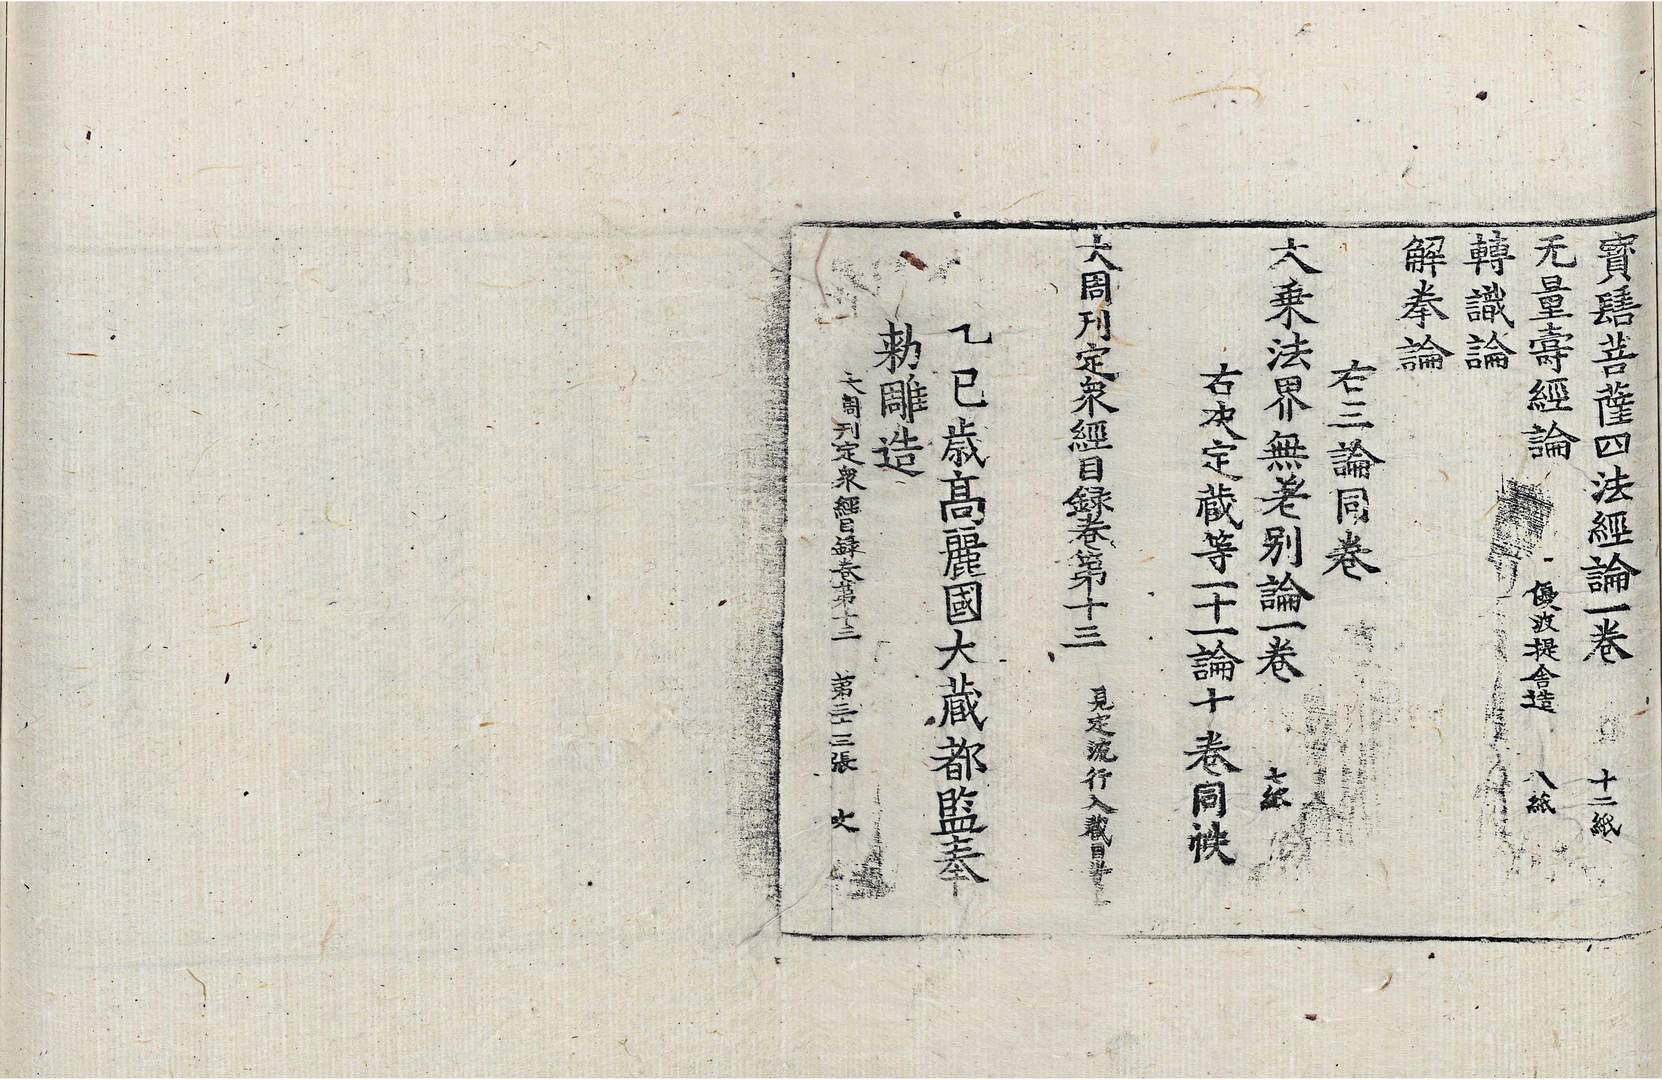 寳髻菩薩四法經論一卷 十二紙
无量壽經論 優波提舍造 八紙
轉識論
解拳論
右三論同卷
大乗法界無差别論一卷 七紙
右决定藏等二十一論十卷同袟
大周刊定衆經目録卷第十三 見定流行入藏目
乙巳歳髙麗國大藏都監奉
勅雕造
大周刊定衆經目録卷第十三 第三十三張